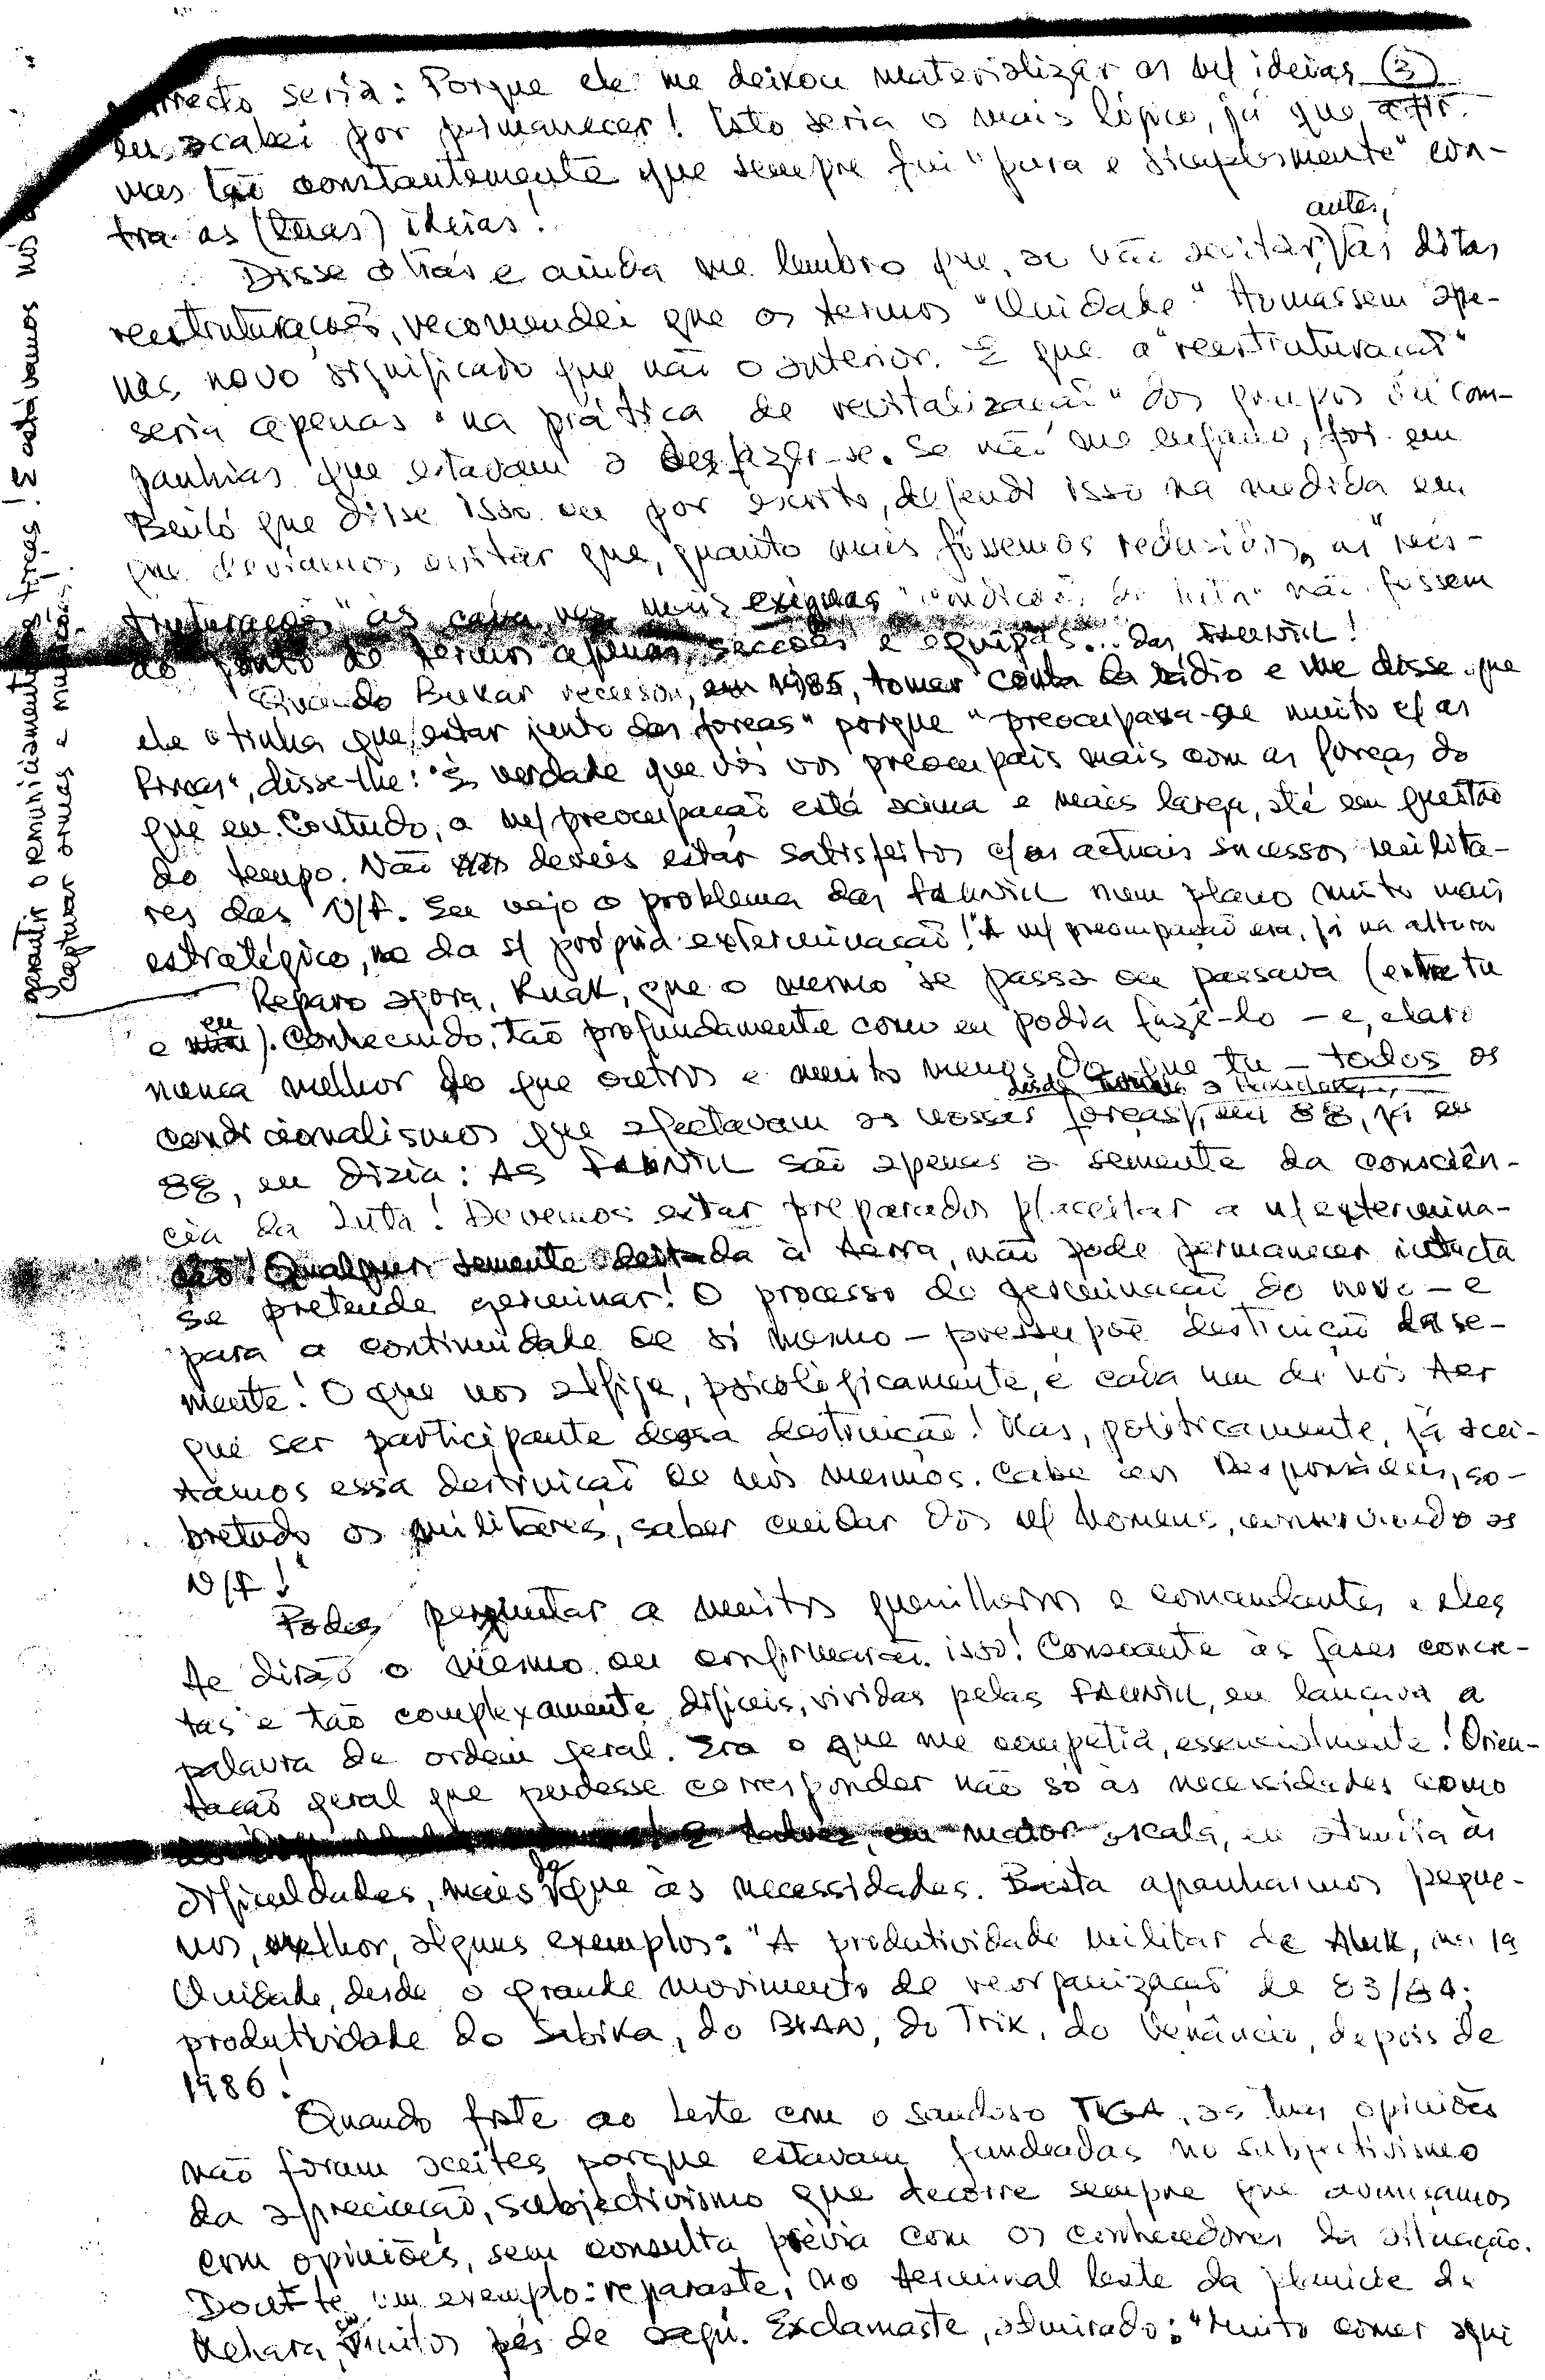 correcto seria: Porque ele me deixou materializar as n/ ideias (3)
eu acabei por permanecer! Isto seria o mais lógico, já que afir-
mas tão constantemente que sempre fui "pura e simplesmente" con-
tra as (tuas) ideias!
Disse atrás e ainda me lembro que, ao não aceitar, antes, as ditas
reestruturações, recomendei que os termos "Unidade" tomassem ape-
nas novo significado que não o anterior. E que a "reestruturação"
seria apenas "na prática de revitalização" dos grupos ou com-
panhias que estavam a desfazer-se. Se não me engano, foi em
que disse isso ou por escrito, defendi isso na medida em
que devíamos evitar que, quanto mais fôssemos reduzidos, as "rees-
truturações" às cada vez mais exíguas "condições da luta" não fossem
ao ponto de termos apenas, secções e equipas... das FALINTIL!
Quando Bukar recusou, em 1985, tomar conta da rádio e me disse que
ele "tinha que estar junto das forças" porque "preocupava-se muito c/ as
forças", disse-lhe: "É verdade que vós vos preocupais mais com as forças do
que eu. Contudo, a m/ preocupação está acima e mais larga, até em questão
do tempo. Não deveis estar satisfeitos c/ os actuais sucessos milita-
res das N/F. Eu vejo o problema das FALINTIL num plano muito mais
estratégico, no da s/ própria exterminação!" A m/ preocupação era, já na altura
garantir o remuniciamento às forças! E estávamos nós a
capturar armas e munições!
Reparo agora, Ruak, que o mesmo se passa ou passava (entre tu
e eu). Conhecendo, tão profundamente como eu podia fazê-lo – e, claro
nunca melhor do que outros e muito menos do que tu – todos os
condicionalismos que afectavam as nossas forças, em 88, já em
88, eu dizia: As FALINTIL são apenas a semente da consciên-
cia da Luta! Devemos estar preparados p/ aceitar a n/ extermina-
ção! Qualquer semente deitada à terra, não pode permanecer intacta
se pretende germinar! O processo de germinação do novo – e
para a continuidade de si mesmo – pressupõe destruição da se-
mente! O que nos aflige, psicologicamente, é cada um de nós ter
que ser participante dessa destruição! Mas, politicamente, já acei-
támos essa destruição de nós mesmos. Cabe aos Responsáveis, so-
bretudo os militares, saber cuidar dos n/ homens, conservando as
N/F!"
Podes perguntar a muitos guerrilheiros e comandantes e eles
te dirão o mesmo ou confirmarão isso! Consoante as fases concre-
tas e tão complexamente difíceis, vividas pelas FALINTIL, eu lançava a
palavra de ordem geral. Era o que me competia, essencialmente! Orien-
tação geral que pudesse corresponder não só às necessidades como
E talvez, em maior escala, eu atendia às
dificuldades, mais do que às necessidades. Basta apanharmos peque-
nos, melhor, alguns exemplos: "A produtividade militar de Aluk, na 1ª
Unidade, desde o grande movimento de reorganização de 83/84;
produtividade do Sabika, do, do Trix, do Venâncio, depois de
1986!
Quando foste ao Leste com o saudoso, as tuas opiniões
não foram aceites porque estavam fundeadas no subjectivismo
da apreciação, subjectivismo que decorre sempre que avançamos
com opiniões, sem consulta prévia com os conhecedores da situação.
Dou-te um exemplo: reparaste, no terminal leste da planície de
Nehara, em muitos pés de. Exclamaste, admirado: "Muito comer aqui